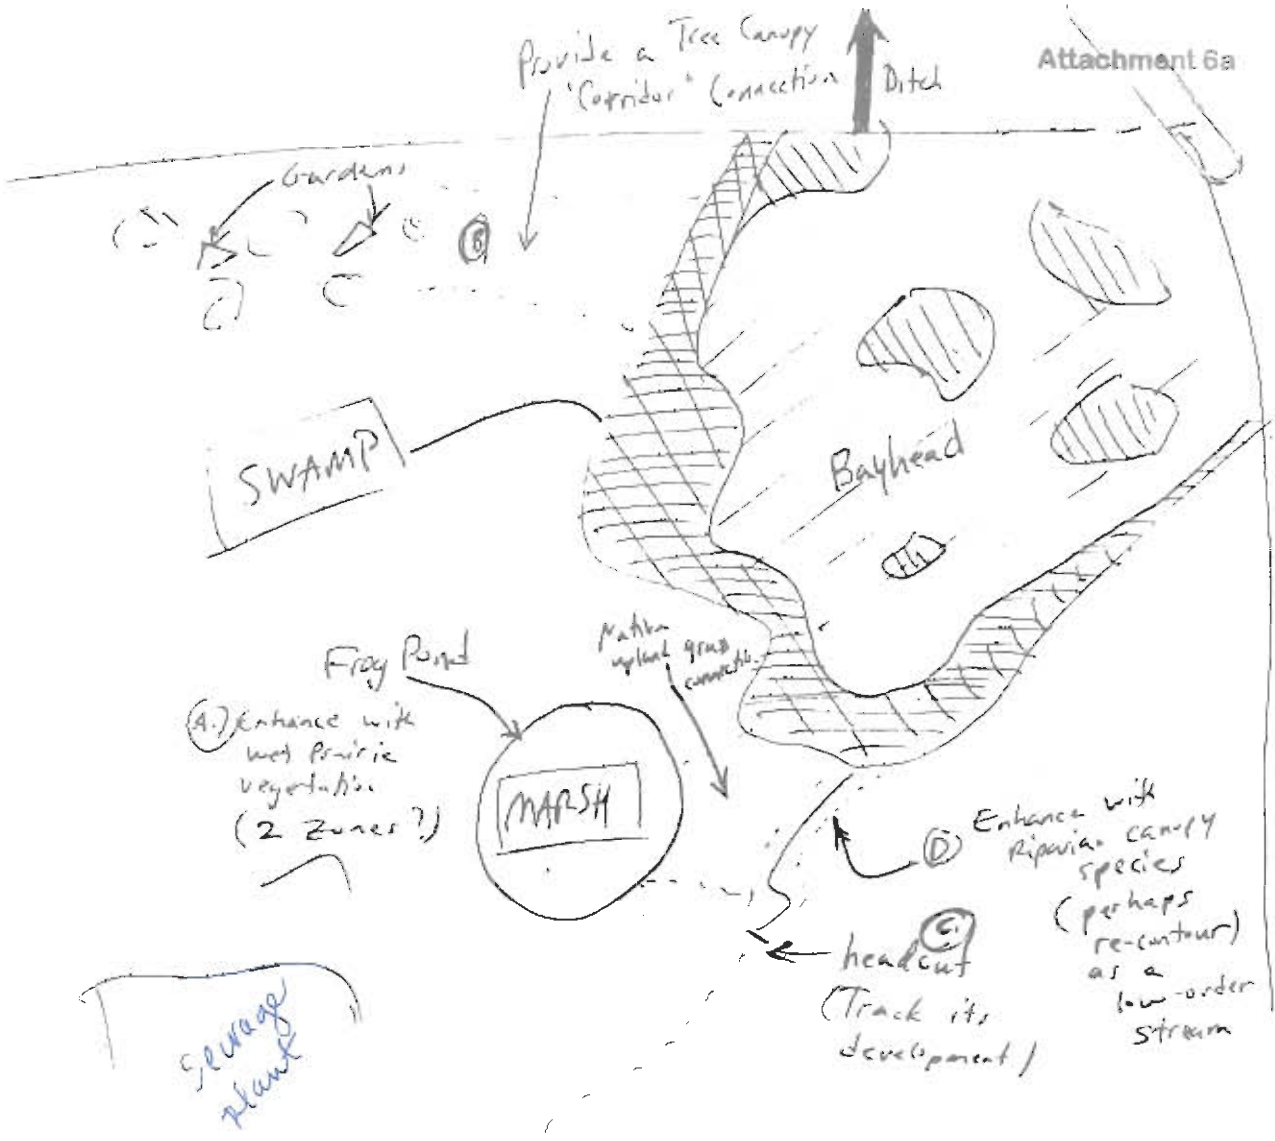 Attachment 6a
Provide a Tree Canopy
"Corridor" Connection
Ditch
Gardens
B
SWAMP
Bayhead
Frog Pond
Native
upland grass
A.) Enhance with
wet Prairie
vegetation
(2 Zones?)
MARSH
D Enhance with
Riparian canopy
species
(perhaps
re-contour)
as a
low-order
stream
C.
headcut
(Track its
development)
sewage
plant